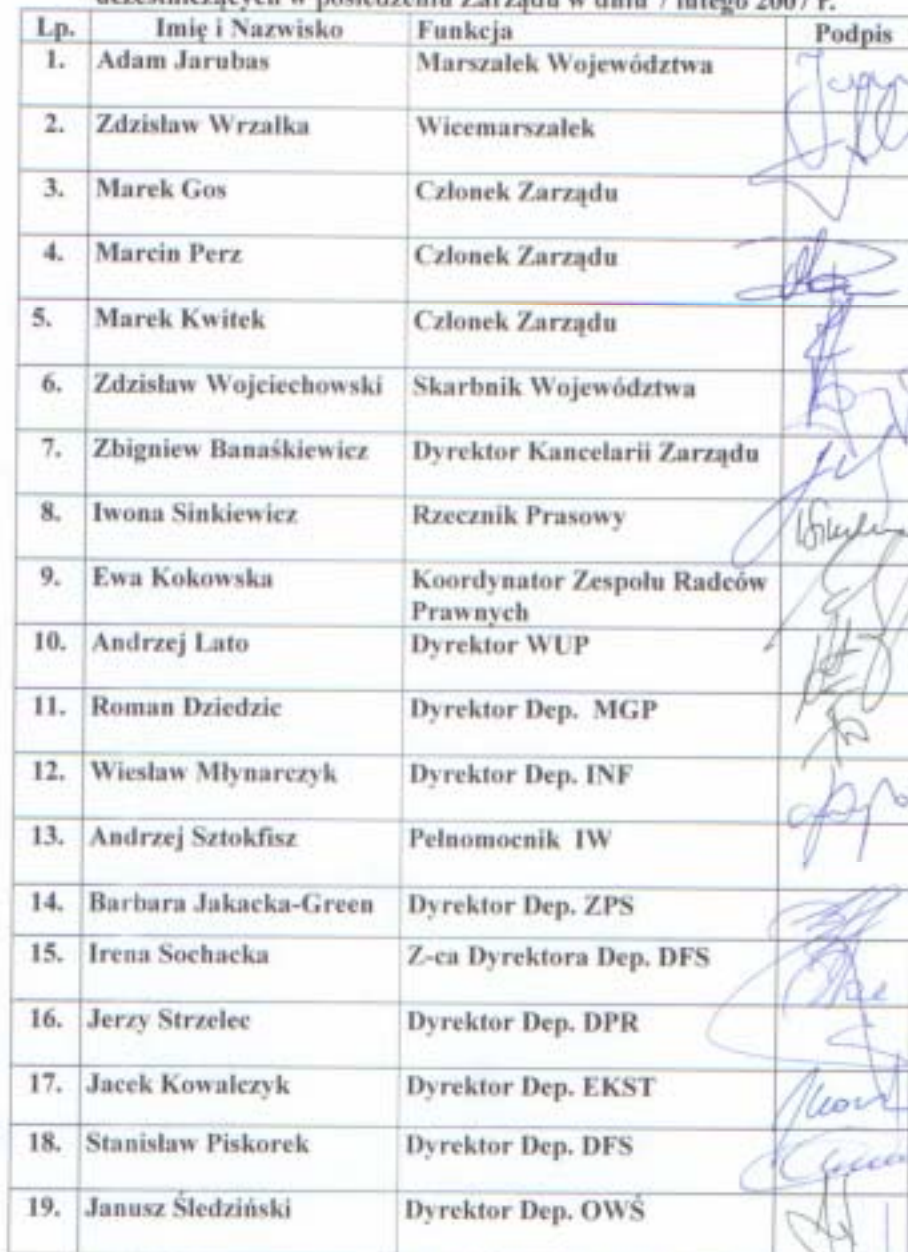 uczestniczących w posiedzeniu Zarządu w dniu 7 lutego 2007 r.
Lp. Imię i Nazwisko Funkcja Podpis
1. Adam Jarubas Marszałek Województwa
2. Zdzisław Wrzałka Wicemarszałek
3. Marek Gos Członek Zarządu
4. Marcin Perz Członek Zarządu
5. Marek Kwitek Członek Zarządu
6. Zdzisław Wojciechowski Skarbnik Województwa
7. Zbigniew Banaśkiewicz Dyrektor Kancelarii Zarządu
8. Iwona Sinkiewicz Rzecznik Prasowy
9. Ewa Kokowska Koordynator Zespołu Radców
Prawnych
10. Andrzej Lato Dyrektor WUP
11. Roman Dziedzic Dyrektor Dep. MGP
12. Wiesław Młynarczyk Dyrektor Dep. INF
13. Andrzej Sztokfisz Pełnomocnik IW
14. Barbara Jakacka-Green Dyrektor Dep. ZPS
15. Irena Sochacka Z-ca Dyrektora Dep. DFS
16. Jerzy Strzelec Dyrektor Dep. DPR
17. Jacek Kowalczyk Dyrektor Dep. EKST
18. Stanisław Piskorek Dyrektor Dep. DFS
19. Janusz Śledziński Dyrektor Dep. OWŚ